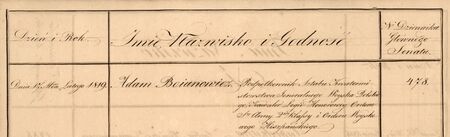 Dzień i Rok.
Imie Nazwisko i Godność
Nr Dziennika
Głownego
Senatu.
Dnia 17 Mca Lutego 1819.
Adam Boianowicz.
Podpółkownik Sztabu Kwatermi-
strzowstwa Jeneralnego Woyska Polskie-
go Kawaler Legii Honorowey Orderu
Sty Anny 2giey Klassy i Orderu Woysko-
wego Hiszpańskiego.
478.